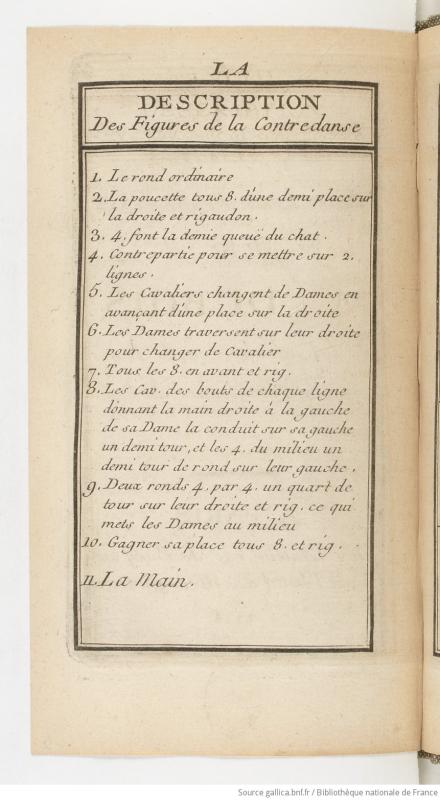 LA
DESCRIPTION
Des Figures de la Contredanse
1. Le rond ordinaire
2. La poucette tous 8. d'une demi place sur
la droite et rigaudon.
3. 4. font la demie queuë du chat.
4. Contrepartie pour se mettre sur 2.
lignes.
5. Les Cavaliers changent de Dames en
avançant d'une place sur la droite
6. Les Dames traversent sur leur droite
pour changer de Cavalier
7. Tous les 8. en avant et rig.
8. Les Cav. des bouts de chaque ligne
donnant la main droite à la gauche
de sa Dame la conduit sur sa gauche
un demi tour, et les 4. du milieu un
demi tour de rond sur leur gauche.
9. Deux ronds 4. par 4. un quart de
tour sur leur droite et rig. ce qui
mets les Dames au milieu
10. Gagner sa place tous 8. et rig.
11. La Main.
Source gallica.bnf.fr / Bibliothèque nationale de France